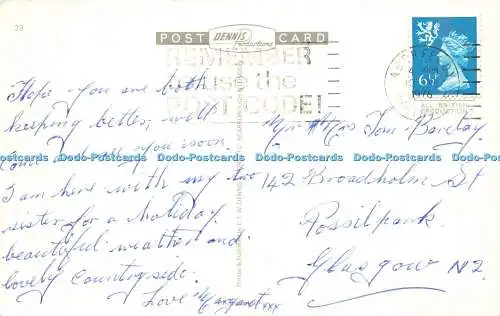 23
POST CARD
DENNIS
Productions
REMEMBER
use the
POST CODE!
6½P
1976
ALL BRITISH
PRODUCTION
Hope you are both
keeping better, will
Come & see you soon.
I am here with my two
sister for a holiday
beautiful weather and
lovely Countryside.
Love Margaret xxx
Mr & Mrs Tom Barclay
142 Broadholm St
Possilpark
Glasgow N2
Dodo-Postcards Dodo-Postcards Dodo-Postcards Dodo-Postcards Dodo-Postcards